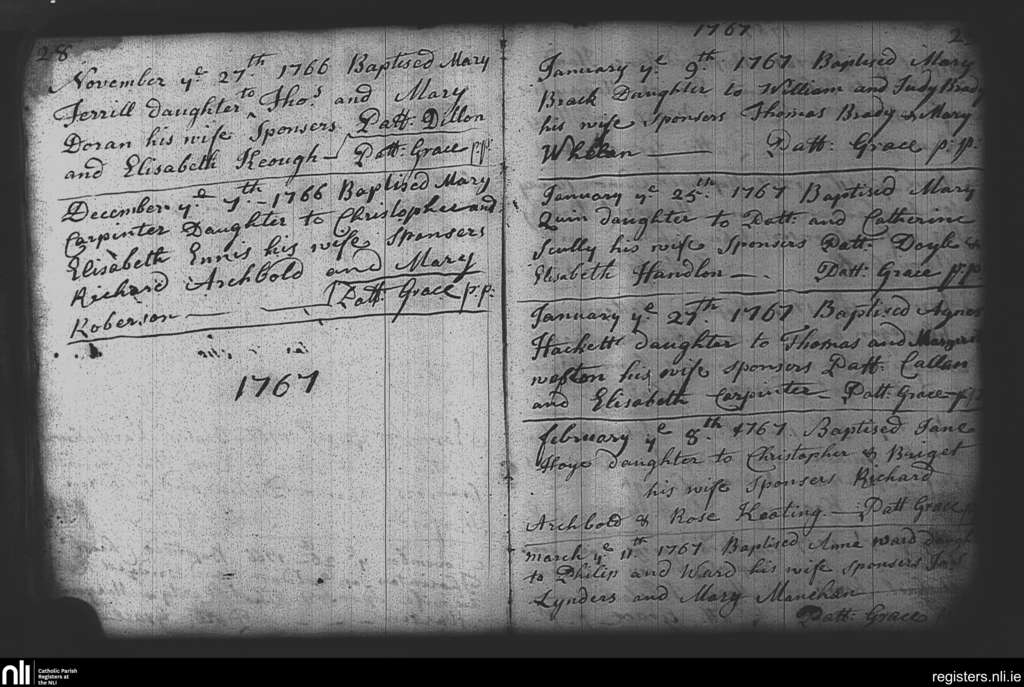 28
November ye 27th 1766 Baptised Mary
Ferrill daughter to Thos and Mary
Doran his wife Sponsers Patt: Dillon
and Elisabeth Keough — Patt: Grace p:p:
December ye 7th — 1766 Baptised Mary
Carpinter Daughter to Christopher and
Elisabeth Ennis his wife Sponsers
Richard Archbold and Mary
Roberson — Patt: Grace p:p:
1767
1767
January ye 9th 1767 Baptised Mary
Brack Daughter to William and Judy Brady
his wife Sponsers Thomas Brady & Mary
Whelan — Patt: Grace p:p:
January ye 25th 1767 Baptised Mary
Quin daughter to Patt: and Catherine
Scully his wife Sponsers Patt: Doyle &
Elisabeth Handlon — Patt: Grace p:p:
January ye 27th 1767 Baptised Agnes
Hackett daughter to Thomas and
weston his wife sponsers Patt: Callan
and Elisabeth Carpinter — Patt: Grace p:p
february ye 8th 1767 Baptised Jane
Hoye daughter to Christopher & Briget
his wife Sponsers Richard
Archbold & Rose Keating — Patt Grace
march ye 11th 1767 Baptised Anna ward daugh
to Philip and Ward his wife sponsers
Lynders and Mary Manehan
Patt: Grace
nli Catholic Parish
Registers at
the NLI
registers.nli.ie